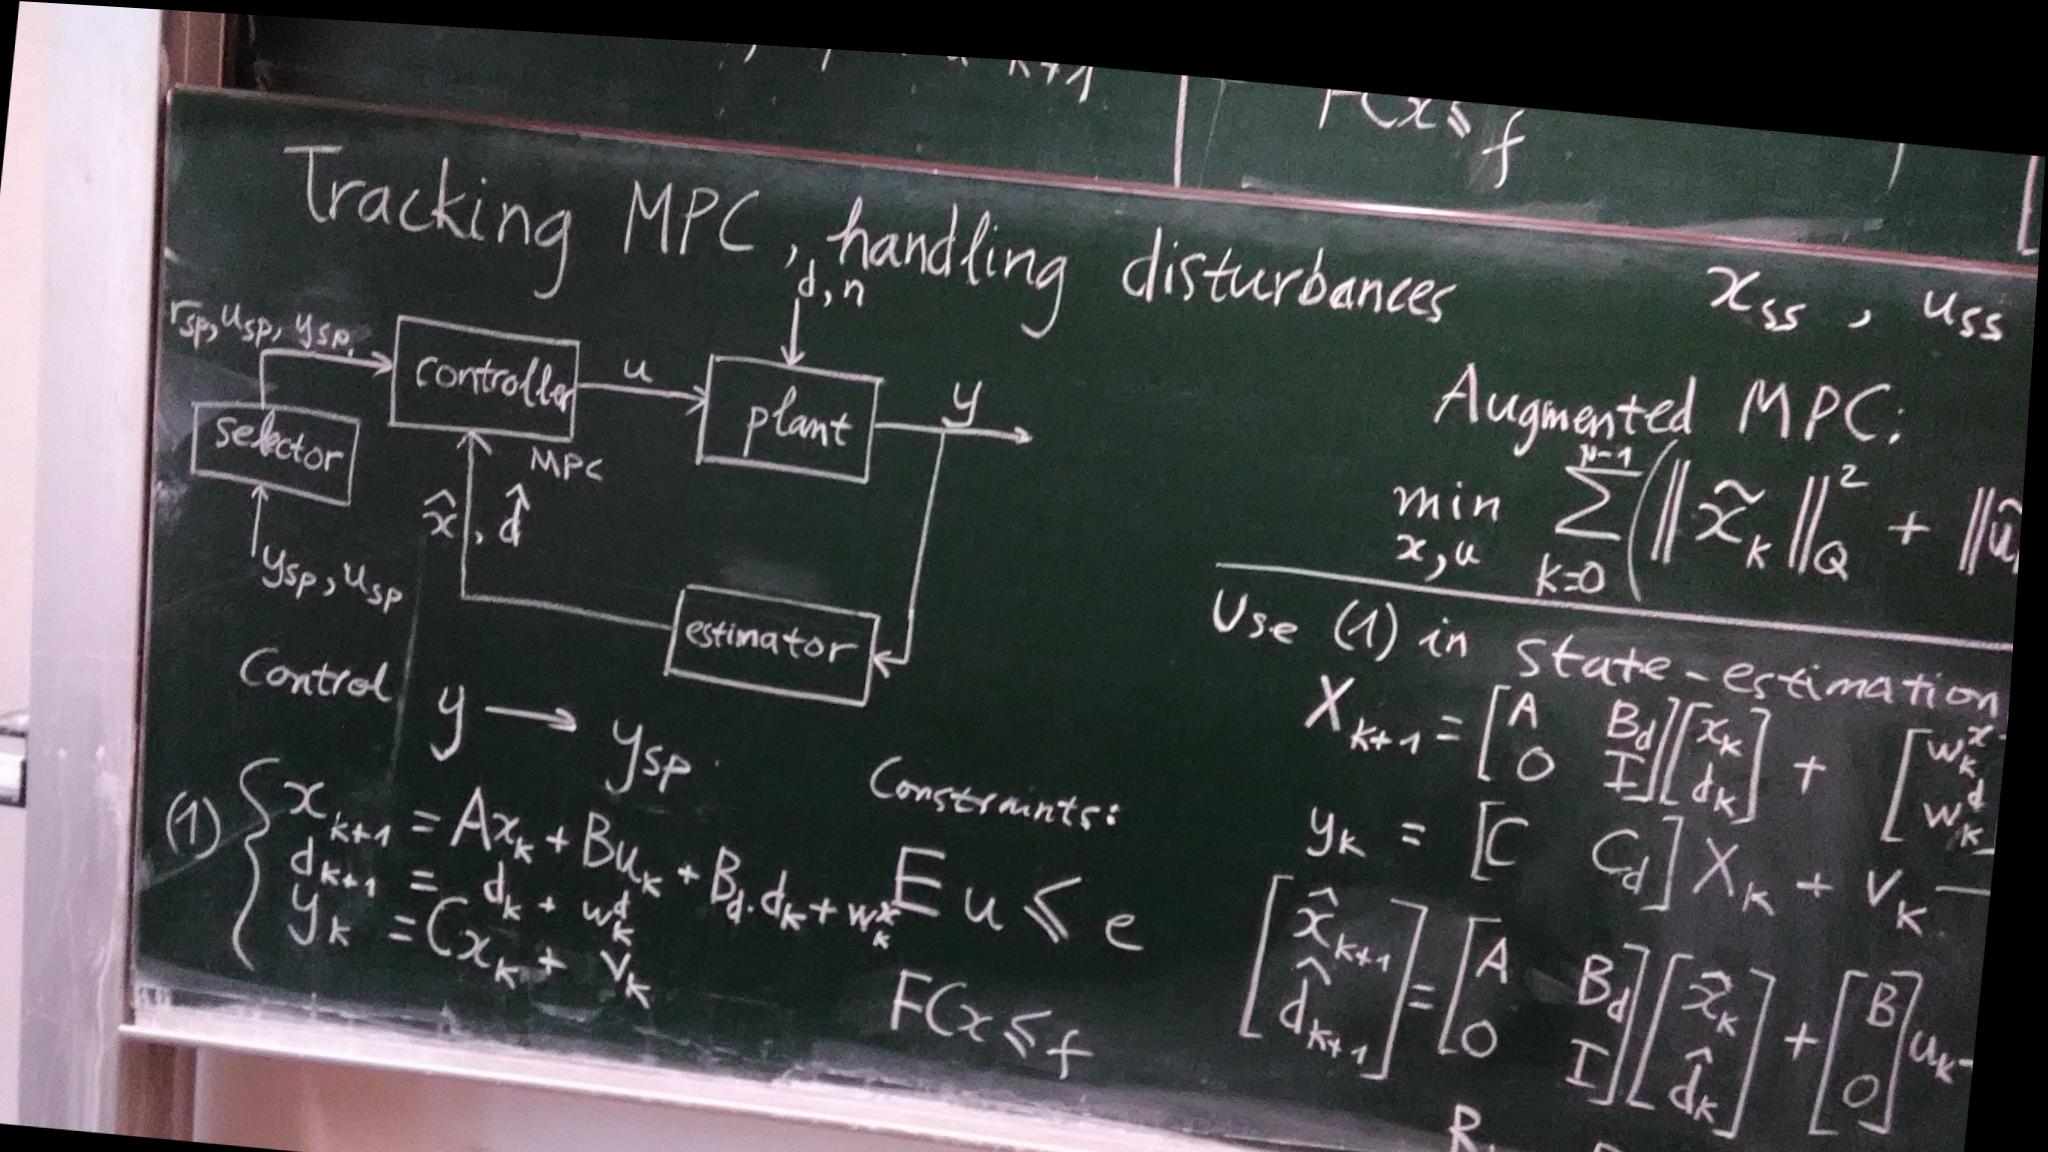 k+1
FCx ≤ f
Tracking MPC, handling disturbances
d, n
r_sp, u_sp, y_sp
controller
u
plant
y
selector
MPC
x̂, d̂
y_sp, u_sp
estimator
Control y → y_sp
(1) { x_{k+1} = Ax_k + Bu_k + B_d . d_k + w_k^x
d_{k+1} = d_k + w_k^d
y_k = Cx_k + v_k
Constraints:
Eu ≤ e
FCx ≤ f
x_ss, u_ss
Augmented MPC:
min_{x,u} Σ_{k=0}^{N-1} ( ‖x̃_k‖²_Q + ‖ũ
Use (1) in state-estimation
X_{k+1} = [A B_d; 0 I] [x_k; d_k] + [w_k^x; w_k^d
y_k = [C C_d] X_k + v_k
[x̂_{k+1}; d̂_{k+1}] = [A B_d; 0 I] [x̂_k; d̂_k] + [B; 0] u_k